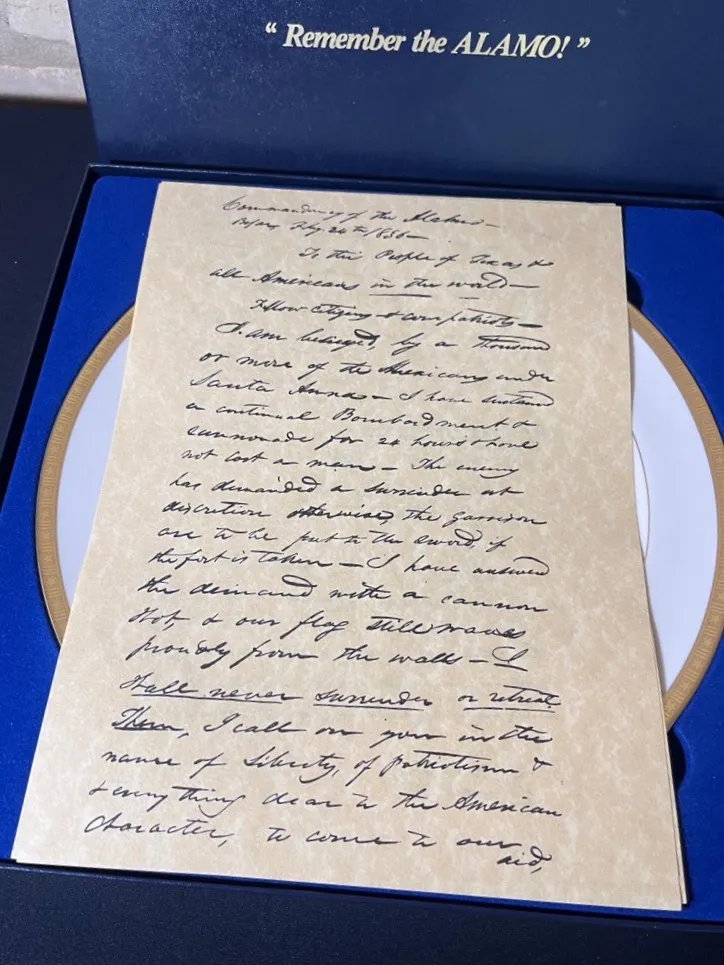 “ Remember the ALAMO! ”
Commandancy of the Alamo—
Bejar, Feby. 24th/1836—
To the People of Texas &
all Americans in the world—
Fellow Citizens & compatriots—
I am besieged, by a thousand
or more of the Mexicans under
Santa Anna— I have sustained
a continual Bombardment &
cannonade for 24 hours & have
not lost a man— The enemy
has demanded a surrender at
discretion, otherwise, the garrison
are to be put to the sword, if
the fort is taken— I have answered
the demand with a cannon
shot, & our flag still waves
proudly from the walls— I
shall never surrender or retreat
Then, I call on you in the
name of Liberty, of patriotism &
& everything dear to the American
character, to come to our
aid,